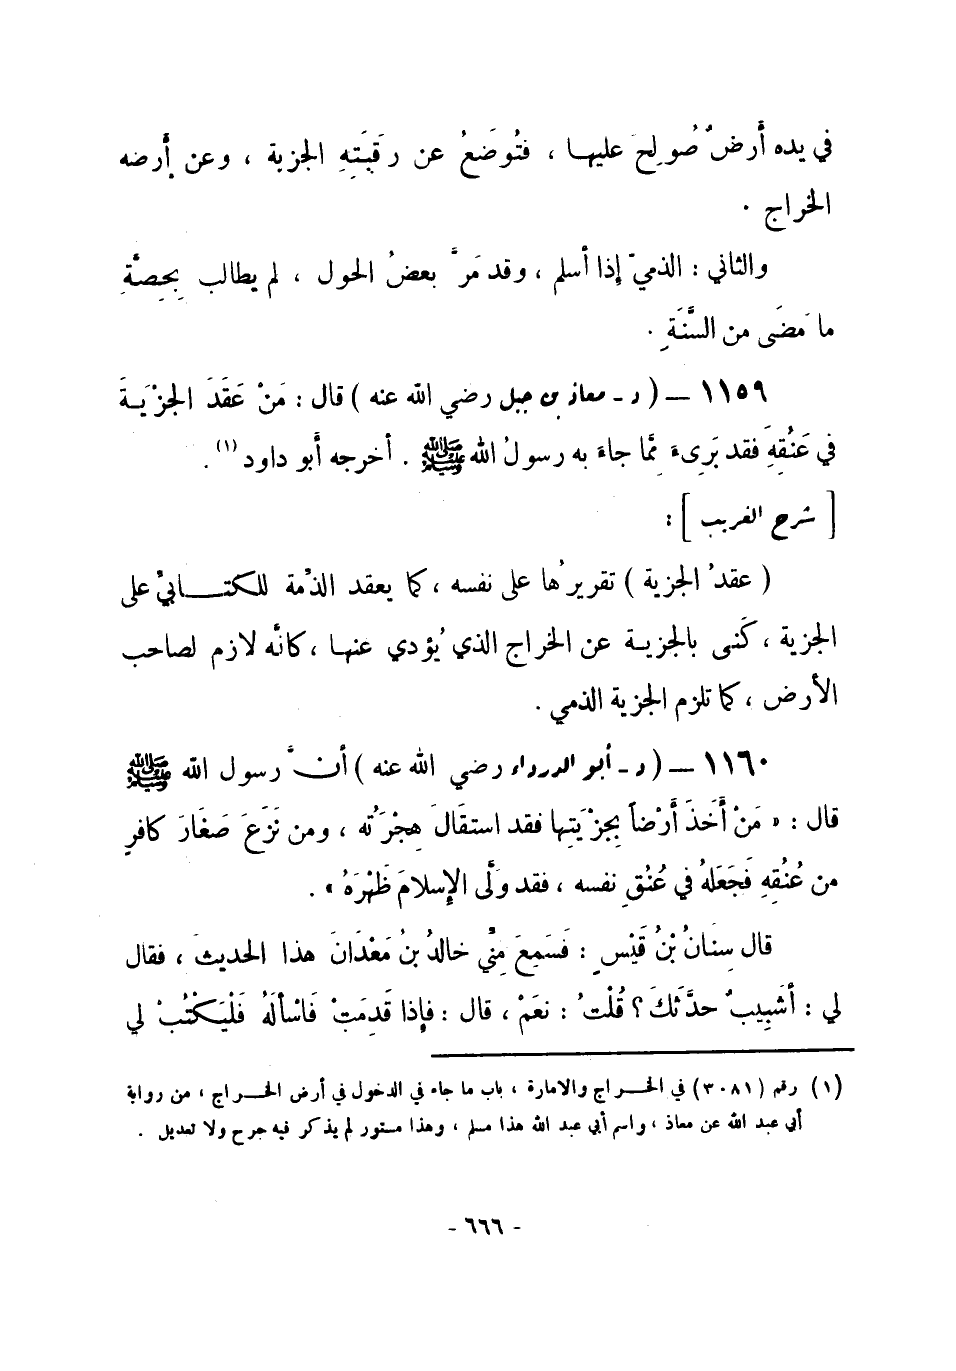 في يده أرضٌ صُولِحَ عليها ، فتُوضَعُ عن رقَبَتِهِ الجزية ، وعن أرضه
الخراج .
والثاني : الذميّ إذا أسلم ، وقد مَرَّ بعضُ الحول ، لم يطالب بِحِصَّةِ
ما مَضَى من السَّنَةِ .
١١٥٩ — ( د - معاذ بن جبل رضي الله عنه ) قال : مَنْ عَقَدَ الجزْيَةَ
في عَنُقِهِ فقد بَرِىءَ مِمَّا جاءَ به رسولُ الله ﷺ . أخرجه أبو داود (١) .
[ شرح الغريب ] :
( عقدُ الجزية ) تقريرُها على نفسه ، كما يعقد الذمة للكتابيُّ على
الجزية ، كَنى بالجزية عن الخراج الذي يُؤدي عنها ، كأنَّه لازم لصاحب
الأرض ، كما تلزم الجزية الذمي .
١١٦٠ — ( د - أبو الدرداء رضي الله عنه ) أنَّ رسول الله ﷺ
قال : « مَنْ أَخَذَ أَرْضاً بِجِزْيَتِها فقد استقَالَ هِجْرَتُه ، ومن نَزَعَ صَغَارَ كافرٍ
من عُنُقِهِ فَجَعَلهُ في عُنُقِ نفسه ، فقد وَلَّى الإِسلامَ ظَهْرَهُ » .
قال سِنَانُ بْنُ قَيْسٍ : فَسَمِعَ مِنِّي خالدُ بنُ مَعْدَانَ هذا الحديثَ ، فقال
لي : أَشَبِيبٌ حدَّثَكَ ؟ قُلْتُ : نعَمْ ، قال : فإذا قَدِمَتْ فَاسْألهُ فَلْيَكْتُبْ لي
(١) رقم (٣٠٨١) في الخراج والامارة ، باب ما جاء في الدخول في أرض الخراج ، من رواية
أبي عبد الله عن معاذ ، واسم أبي عبد الله هذا مسلم ، وهذا مستور لم يذكر فيه جرح ولا تعديل .
- ٦٦٦ -